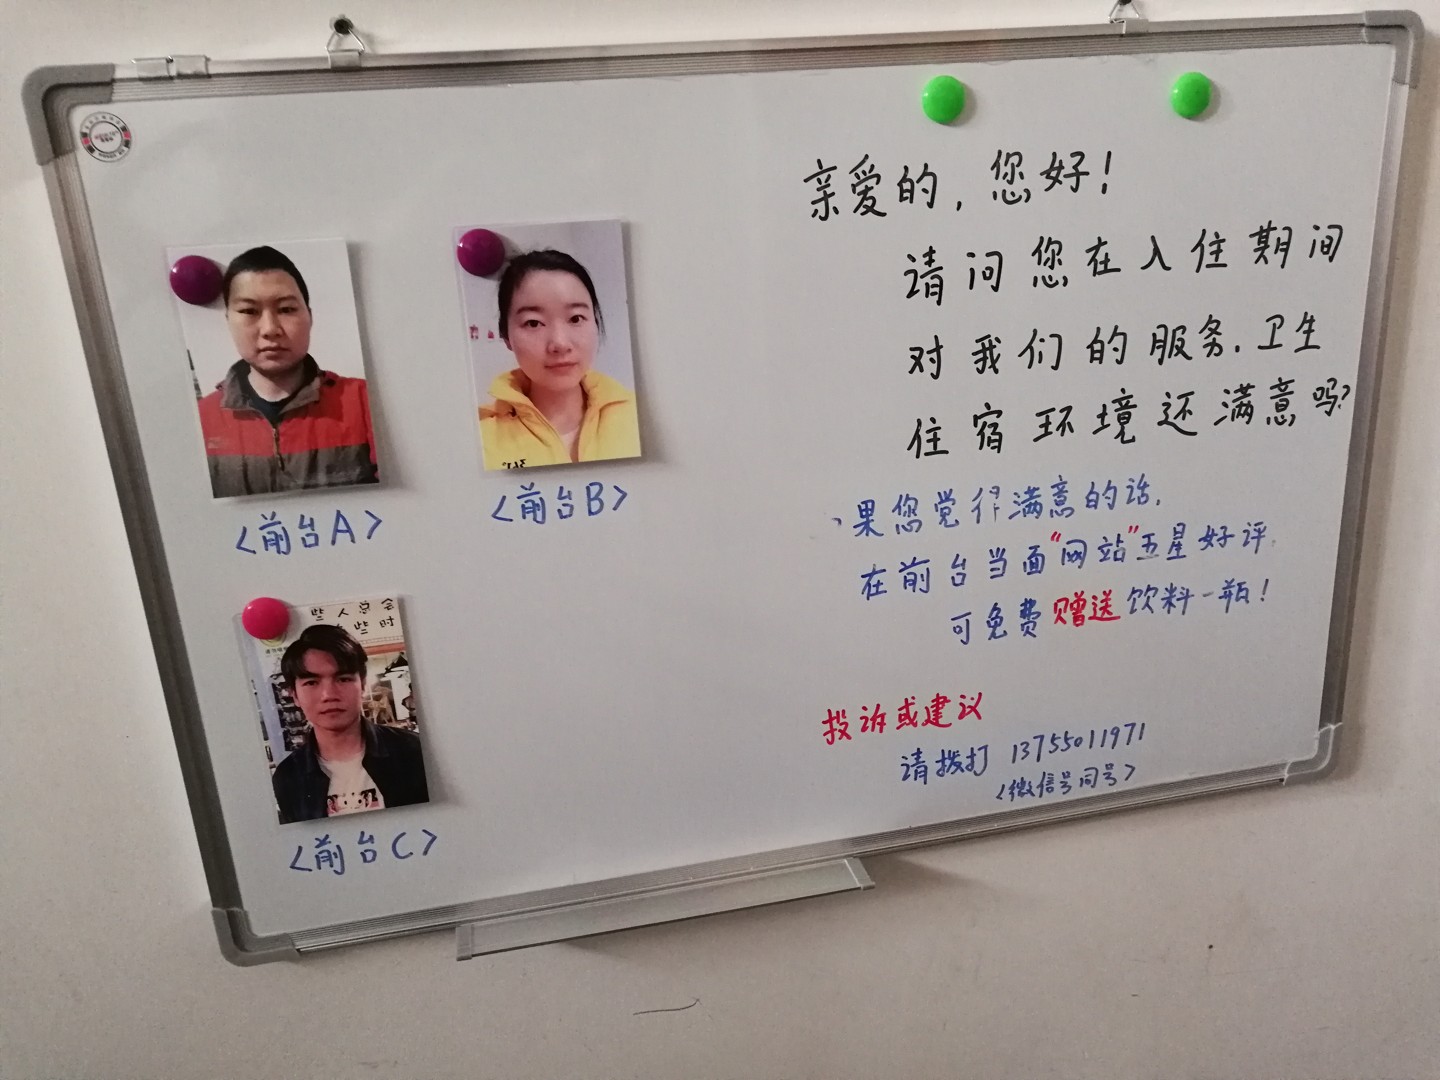 亲爱的，您好！
请问您在入住期间
对我们的服务.卫生
住宿环境还满意吗?
果您觉得满意的话,
在前台当面"网站"五星好评,
可免费赠送饮料一瓶！
投诉或建议
请拨打 13755011971
<微信号同号>
<前台A>
<前台B>
些人总会
些时
<前台C>